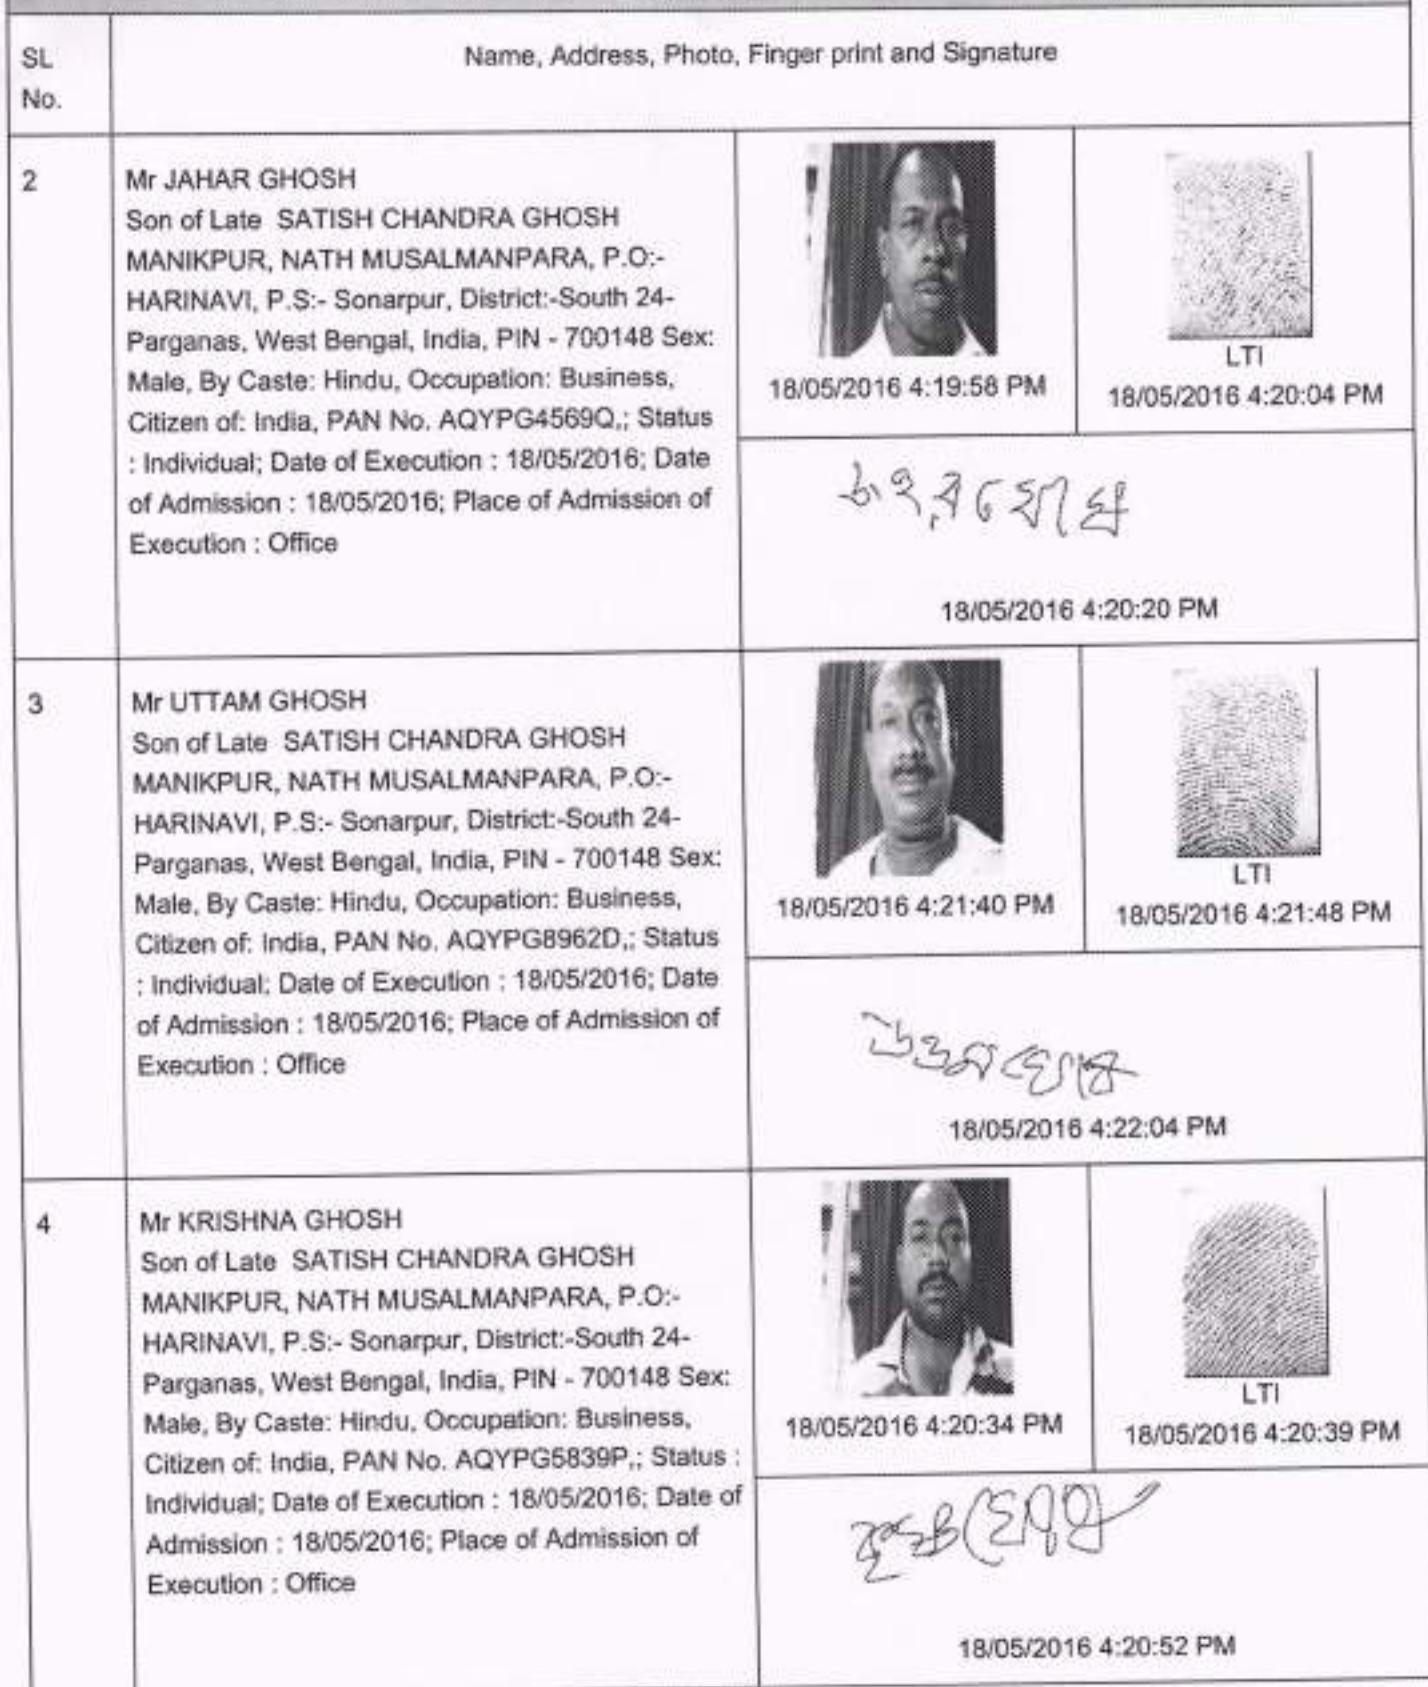 SL
No.
Name, Address, Photo, Finger print and Signature
2
Mr JAHAR GHOSH
Son of Late SATISH CHANDRA GHOSH
MANIKPUR, NATH MUSALMANPARA, P.O:-
HARINAVI, P.S:- Sonarpur, District:-South 24-
Parganas, West Bengal, India, PIN - 700148 Sex:
Male, By Caste: Hindu, Occupation: Business,
Citizen of: India, PAN No. AQYPG4569Q,; Status
: Individual; Date of Execution : 18/05/2016; Date
of Admission : 18/05/2016; Place of Admission of
Execution : Office
18/05/2016 4:19:58 PM
LTI
18/05/2016 4:20:04 PM
জহর ঘোষ
18/05/2016 4:20:20 PM
3
Mr UTTAM GHOSH
Son of Late SATISH CHANDRA GHOSH
MANIKPUR, NATH MUSALMANPARA, P.O:-
HARINAVI, P.S:- Sonarpur, District:-South 24-
Parganas, West Bengal, India, PIN - 700148 Sex:
Male, By Caste: Hindu, Occupation: Business,
Citizen of: India, PAN No. AQYPG8962D,; Status
: Individual; Date of Execution : 18/05/2016; Date
of Admission : 18/05/2016; Place of Admission of
Execution : Office
18/05/2016 4:21:40 PM
LTI
18/05/2016 4:21:48 PM
উত্তম ঘোষ
18/05/2016 4:22:04 PM
4
Mr KRISHNA GHOSH
Son of Late SATISH CHANDRA GHOSH
MANIKPUR, NATH MUSALMANPARA, P.O:-
HARINAVI, P.S:- Sonarpur, District:-South 24-
Parganas, West Bengal, India, PIN - 700148 Sex:
Male, By Caste: Hindu, Occupation: Business,
Citizen of: India, PAN No. AQYPG5839P,; Status :
Individual; Date of Execution : 18/05/2016; Date of
Admission : 18/05/2016; Place of Admission of
Execution : Office
18/05/2016 4:20:34 PM
LTI
18/05/2016 4:20:39 PM
কৃষ্ণ ঘোষ
18/05/2016 4:20:52 PM